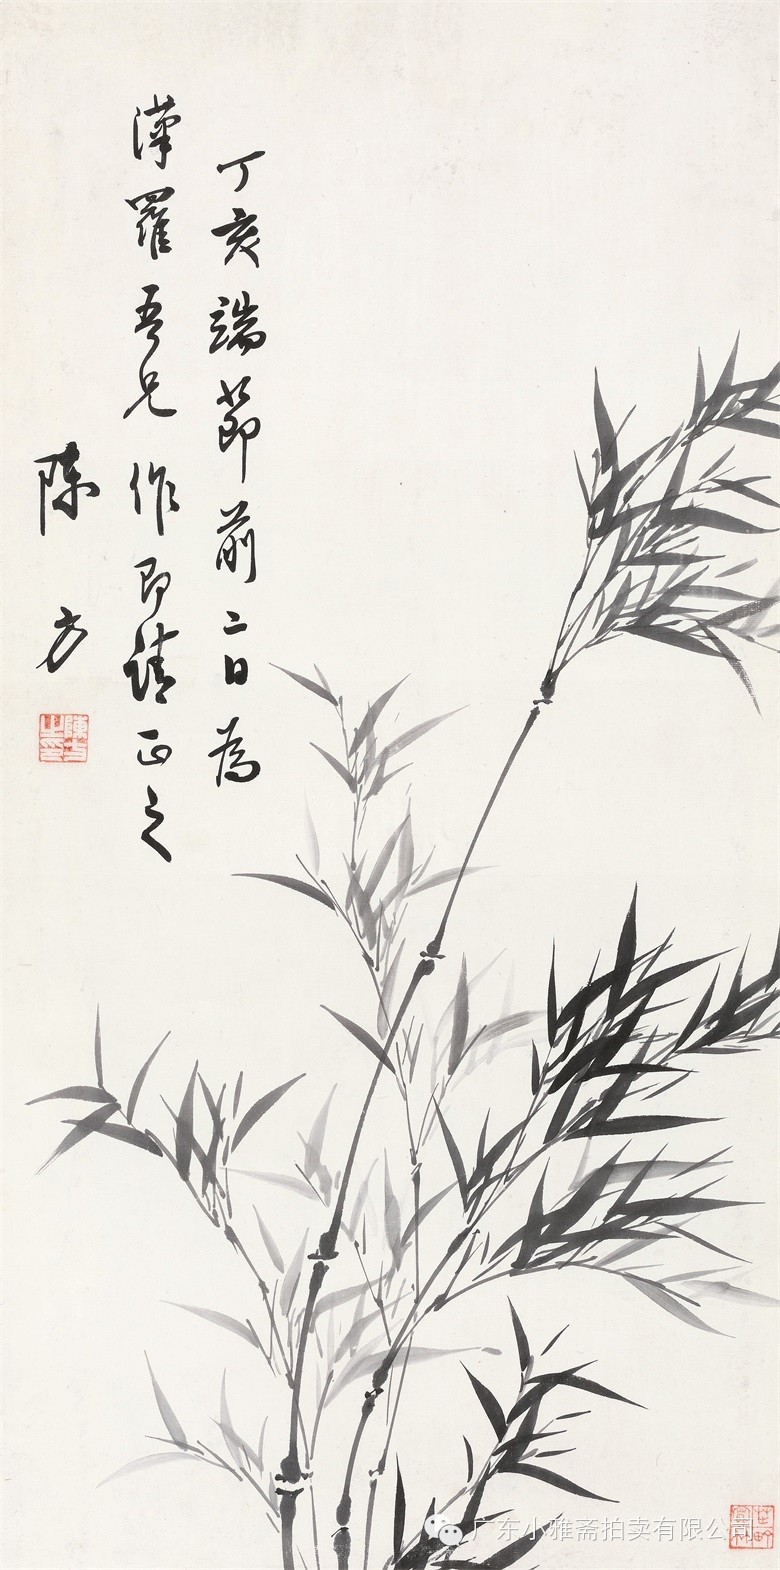 丁亥端節前二日為
漢羅吾兄作即請正之
陳方
陳方之印
广东小雅斋拍卖有限公司